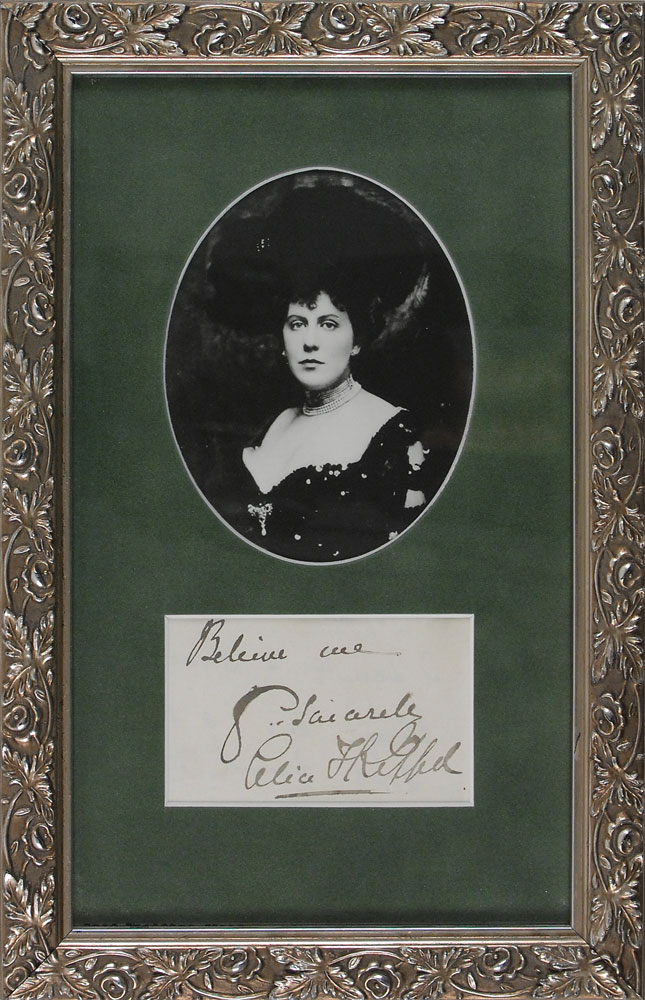 Believe me
Yrs. Sincerely
Alice F Keppel